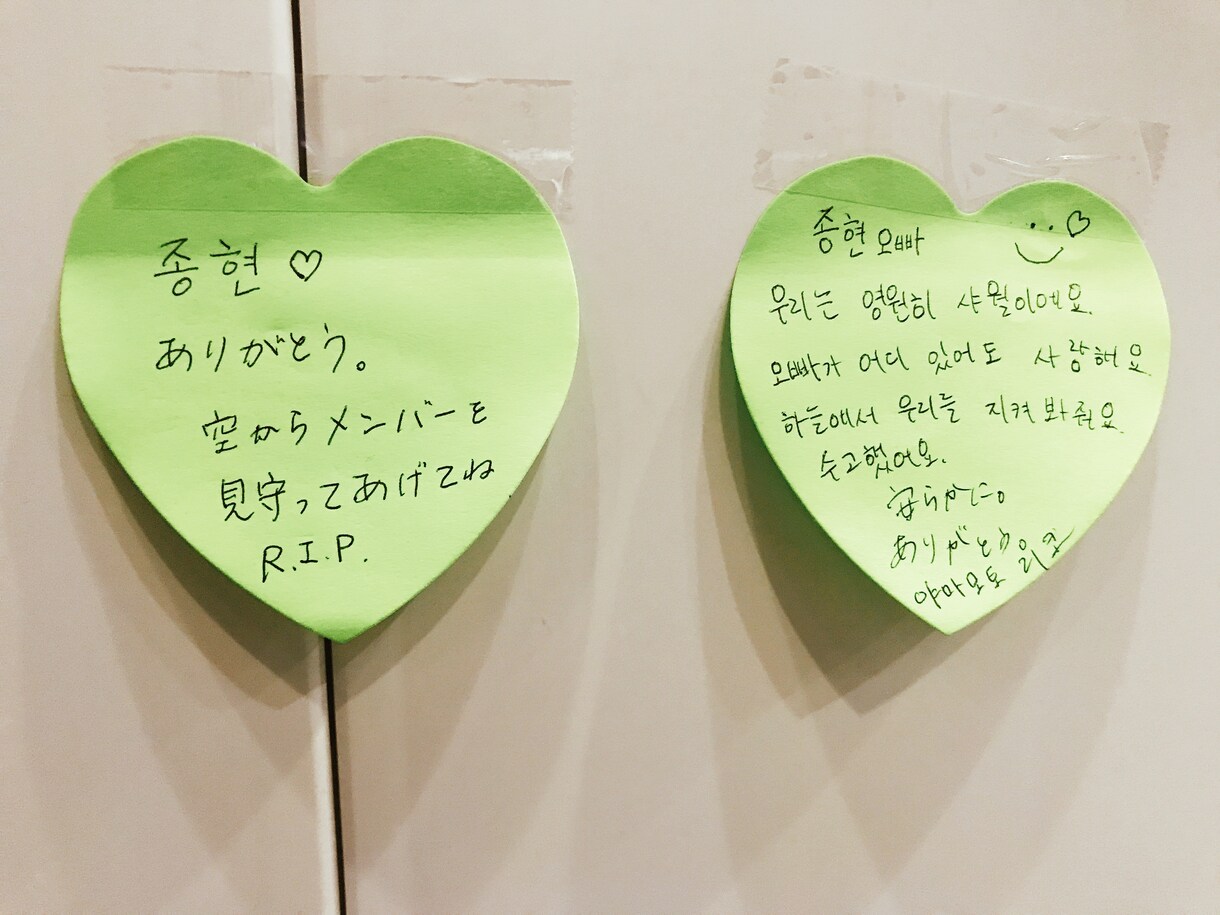 종현♡
ありがとう。
空からメンバーを
見守ってあげてね
R.I.P.
종현 오빠
우리는 영원히 샤월이에요.
오빠가 어디 있어도 사랑해요.
하늘에서 우리를 지켜 봐 줘요.
수고했어요.
安らかに。
ありがとう
야마모토